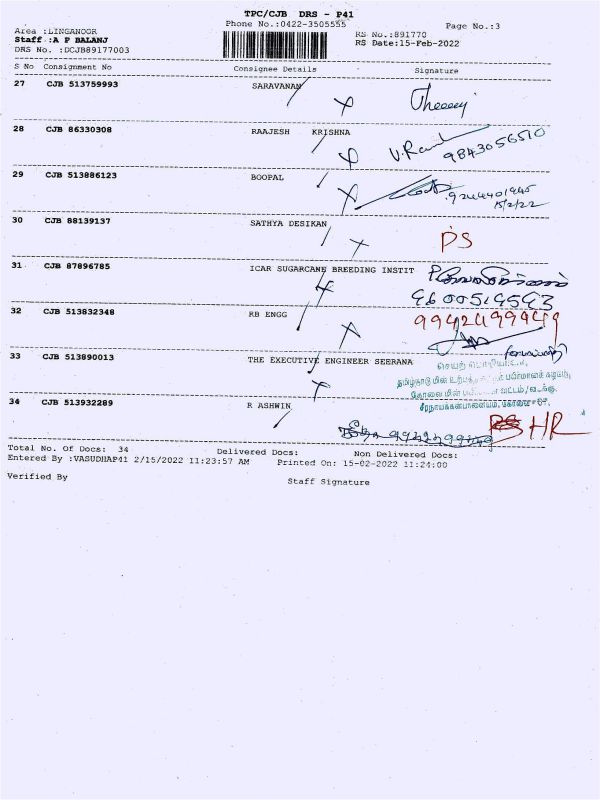 TPC/CJB DRS - P41
Phone No.:0422-3505555
Page No.:3
Area :LINGANOOR
RS No.:891770
Staff :A P BALANJ
RS Date:15-Feb-2022
DRS No. :DCJB89177003
S No Consignment No Consignee Details Signature
27 CJB 513759993 SARAVANAN
28 CJB 86330308 RAAJESH KRISHNA
9843056510
29 CJB 513886123 BOOPAL
15/2/22
30 CJB 88139137 SATHYA DESIKAN PS
31 CJB 87896785 ICAR SUGARCANE BREEDING INSTIT
32 CJB 513832348 RB ENGG
33 CJB 513890013 THE EXECUTIVE ENGINEER SEERANA
34 CJB 513932289 R ASHWIN
HR
Total No. Of Docs: 34 Delivered Docs: Non Delivered Docs:
Entered By :VASUDHAP41 2/15/2022 11:23:57 AM Printed On: 15-02-2022 11:24:00
Verified By Staff Signature